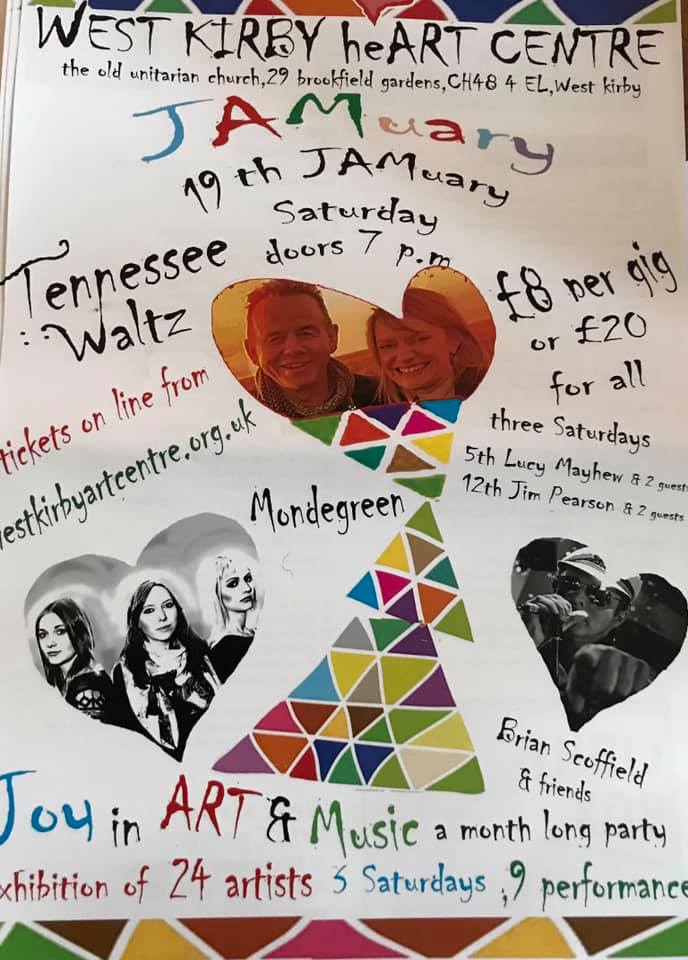 WEST KIRBY heART CENTRE
the old unitarian church,29 brookfield gardens,CH48 4 EL,West kirby
JAMuary
19 th JAMuary
Saturday
doors 7 p.m
Tennessee
Waltz
£8 per gig
or £20
for all
three Saturdays
5th Lucy Mayhew & 2 guest
12th Jim Pearson & 2 guests
tickets on line from
estkirbyartcentre.org.uk
Mondegreen
Brian Scoffield
& friends
Joy in ART & Music a month long party
xhibition of 24 artists 3 Saturdays ,9 performance